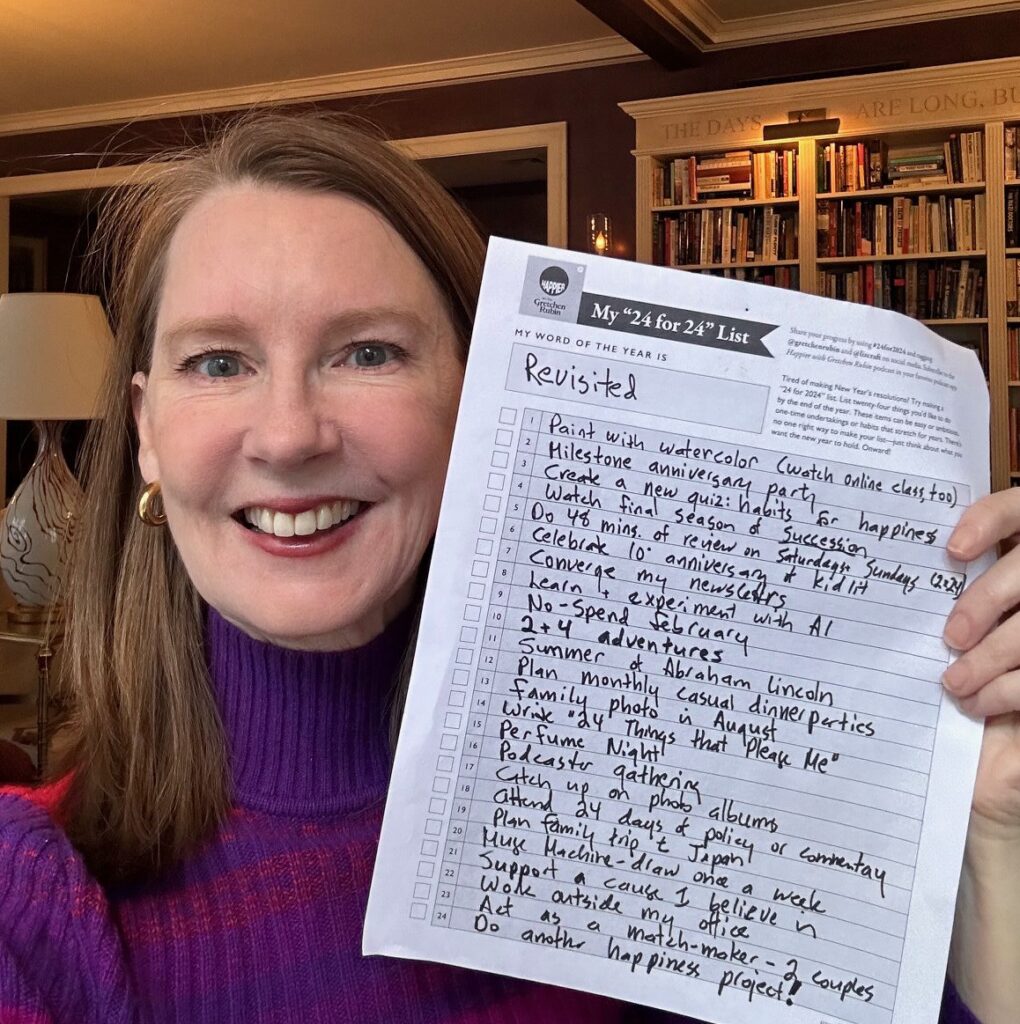 THE DAYS ARE LONG, BU
HAPPIER
Gretchen
Rubin
My "24 for 24" List
Share your progress by using #24for2024 and tagging
@gretchenrubin and @lizcraft on social media. Subscribe to the
Happier with Gretchen Rubin podcast in your favorite podcast app.
MY WORD OF THE YEAR IS
Revisited
Tired of making New Year's resolutions? Try making a
"24 for 2024" list. List twenty-four things you'd like to do
by the end of the year. These items can be easy or ambitious,
one-time undertakings or habits that stretch for years. There's
no one right way to make your list—just think about what you
want the new year to hold. Onward!
1 Paint with watercolor (watch online class, too)
2 Milestone anniversary party
3 Create a new quiz: habits for happiness
4 Watch final season of Succession
5 Do 48 mins. of review on Saturdays + Sundays (2x24)
6 Celebrate 10. anniversary of Kidlit
7 Converge my newsletters
8 Learn + experiment with AI
9 No-Spend February
10 2+4 adventures
11 Summer of Abraham Lincoln
12 Plan monthly casual dinnerparties
13 Family photo in August
14 Write "24 Things that Please Me"
15 Perfume Night
16 Podcaster gathering
17 Catch up on photo albums
18 Attend 24 days of policy or commentary
19 Plan family trip to Japan
20 Muse Machine - draw once a week
21 Support a cause I believe in
22 Work outside my office
23 Act as a match-maker - 2 couples
24 Do another happiness project!